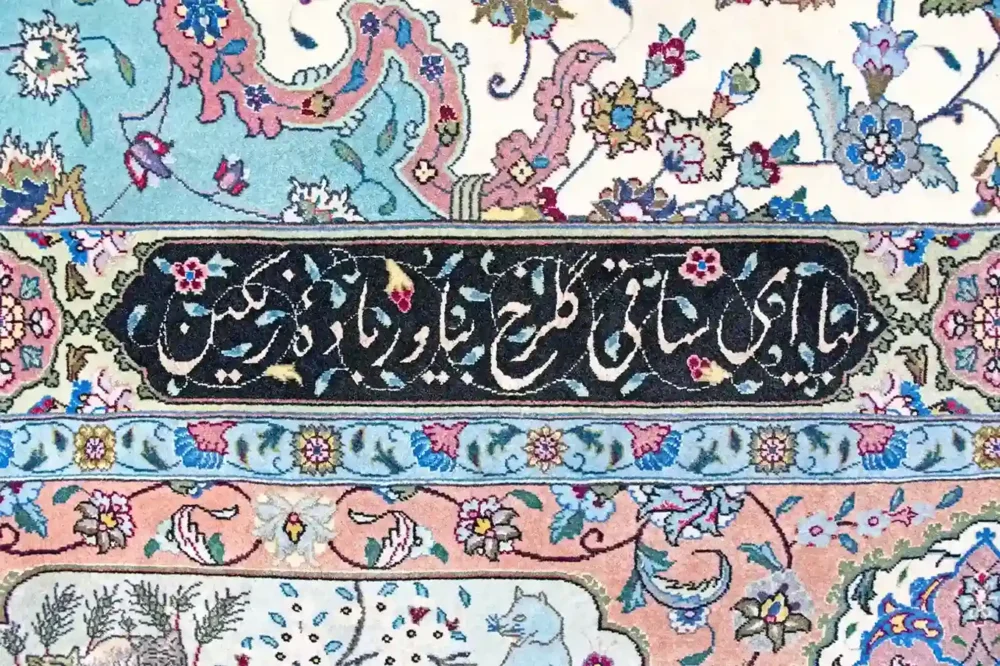 بیا ای ساقی گلرخ بیاور باده رنگین